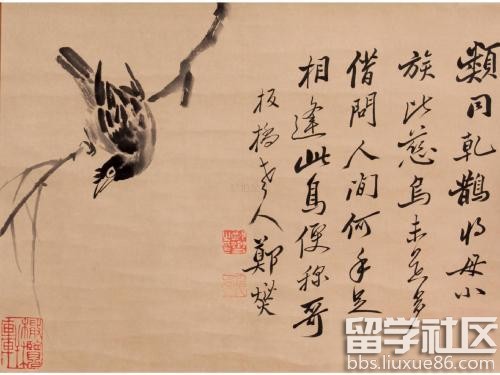 類同乾鵲将毋小
族比慈烏未多
借問人间何手足
相逢此鳥便称哥
板橋老人鄭燮
留学社区
bbs.liuxue86.com